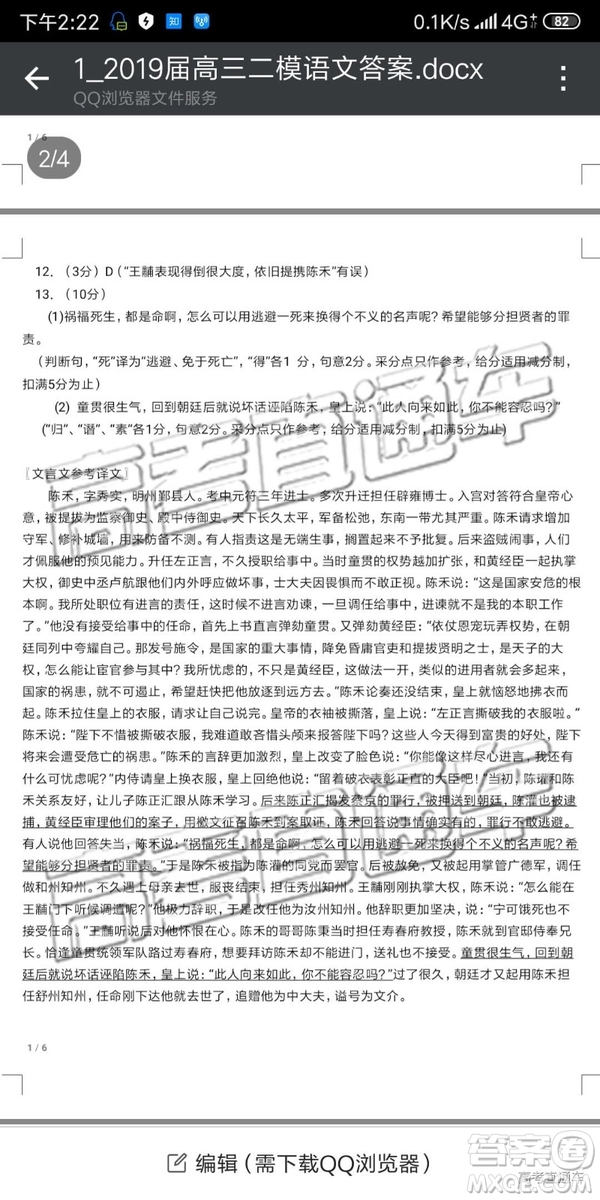 下午2:22 知 0.1K/s 4G+ 82
1_2019届高三二模语文答案.docx
QQ浏览器文件服务
1 / 6
2/4
12．（3分）D（“王黼表现得倒很大度，依旧提携陈禾”有误）
13．（10分）
(1)祸福死生，都是命啊，怎么可以用逃避一死来换得个不义的名声呢？希望能够分担贤者的罪
责。
（判断句，“死”译为“逃避、免于死亡”，“得”各1 分，句意2分。采分点只作参考，给分适用减分制，
扣满5分为止）
(2) 童贯很生气，回到朝廷后就说坏话诬陷陈禾，皇上说：“此人向来如此，你不能容忍吗？”
(“归”、“谮”、“素”各1分，句意2分。采分点只作参考，给分适用减分制，扣满5分为止)
〖文言文参考译文〗
陈禾，字秀实，明州鄞县人。考中元符三年进士。多次升迁担任辟雍博士。入宫对答符合皇帝心
意，被提拔为监察御史、殿中侍御史。天长久太平，军备松弛，东南一带尤其严重。陈禾请求增加
守军、修补城墙，用来防备不测。有人指责这是无端生事，搁置起来不予批复。后来盗贼闹事，人们
才佩服他的预见能力。升任左正言，不久授职给事中。当时童贯的权势越加扩张，和黄经臣一起执掌
大权，御史中丞卢航跟他们内外呼应做坏事，士大夫因畏惧而不敢正视。陈禾说：“这是国家安危的根
本啊。我所处职位有进言的责任，这时候不进言劝谏，一旦调任给事中，进谏就不是我的本职工作
了。”他没有接受给事中的任命，首先上书直言弹劾童贯。又弹劾黄经臣：“依仗恩宠玩弄权势，在朝
廷同列中夸耀自己。那发号施令，是国家的重大事情，降免昏庸官吏和提拔贤明之士，是天子的大
权，怎么能让宦官参与其中？我所忧虑的，不只是黄经臣，这做法一开，类似的进用者就会多起来，
国家的祸患，就不可遏止，希望赶快把他放逐到远方去。”陈禾论奏还没结束，皇上就恼怒地拂衣而
起。陈禾拉住皇上的衣服，请求让自己说完。皇帝的衣袖被撕落，皇上说：“左正言撕破我的衣服啦。”
陈禾说：“陛下不惜被撕破衣服，我难道敢吝惜头颅来报答陛下吗？这些人今天得到富贵的好处，陛下
将来会遭受危亡的祸患。”陈禾的言辞更加激烈，皇上改变了脸色说：“你能像这样尽心进言，我还有
什么可忧虑呢？”内侍请皇上换衣服，皇上说：“留着破衣表彰正直的大臣吧！”当初，陈瓘和陈
禾关系友好，让儿子陈正汇跟从陈禾学习。后来陈正汇揭发蔡京的罪行，被押送到朝廷，陈瓘也被逮
捕，黄经臣审理他们的案子，用檄文征召陈禾到案取证，陈禾回答说事情确实有的，罪行不敢逃避。
有人说他回答失当，陈禾说：“祸福死生，都是命啊，怎么可以用逃避一死来换得个不义的名声呢？希
望能够分担贤者的罪责。”于是陈禾被指为陈瓘的同党而罢官。后被赦免，又被起用掌管广德军，调任
做和州知州。不久遇上母亲去世，服丧结束，担任秀州知州。王黼刚刚执掌大权，陈禾说：“怎么能在
王黼门下听候调遣呢？”他极力辞职，于是改任他为汝州知州。他辞职更加坚决，说：“宁可饿死也不
接受任命。”王黼听说后对他怀恨在心。陈禾的哥哥陈秉当时担任寿春府教授，陈禾就到官邸侍奉兄
长。恰逢童贯统领军队路过寿春府，想要拜访陈禾却不能进门，送礼也不接受。童贯很生气，回到朝
廷后就说坏话诬陷陈禾，皇上说：“此人向来如此，你不能容忍吗？”过了很久，朝廷才又起用陈禾担
任舒州知州，任命刚下达他就去世了，追赠他为中大夫，谥号为文介。
1 / 6
高考直通车
高考直通车
编辑（需下载QQ浏览器）
答案圈
高考直通车
MXQE.COM